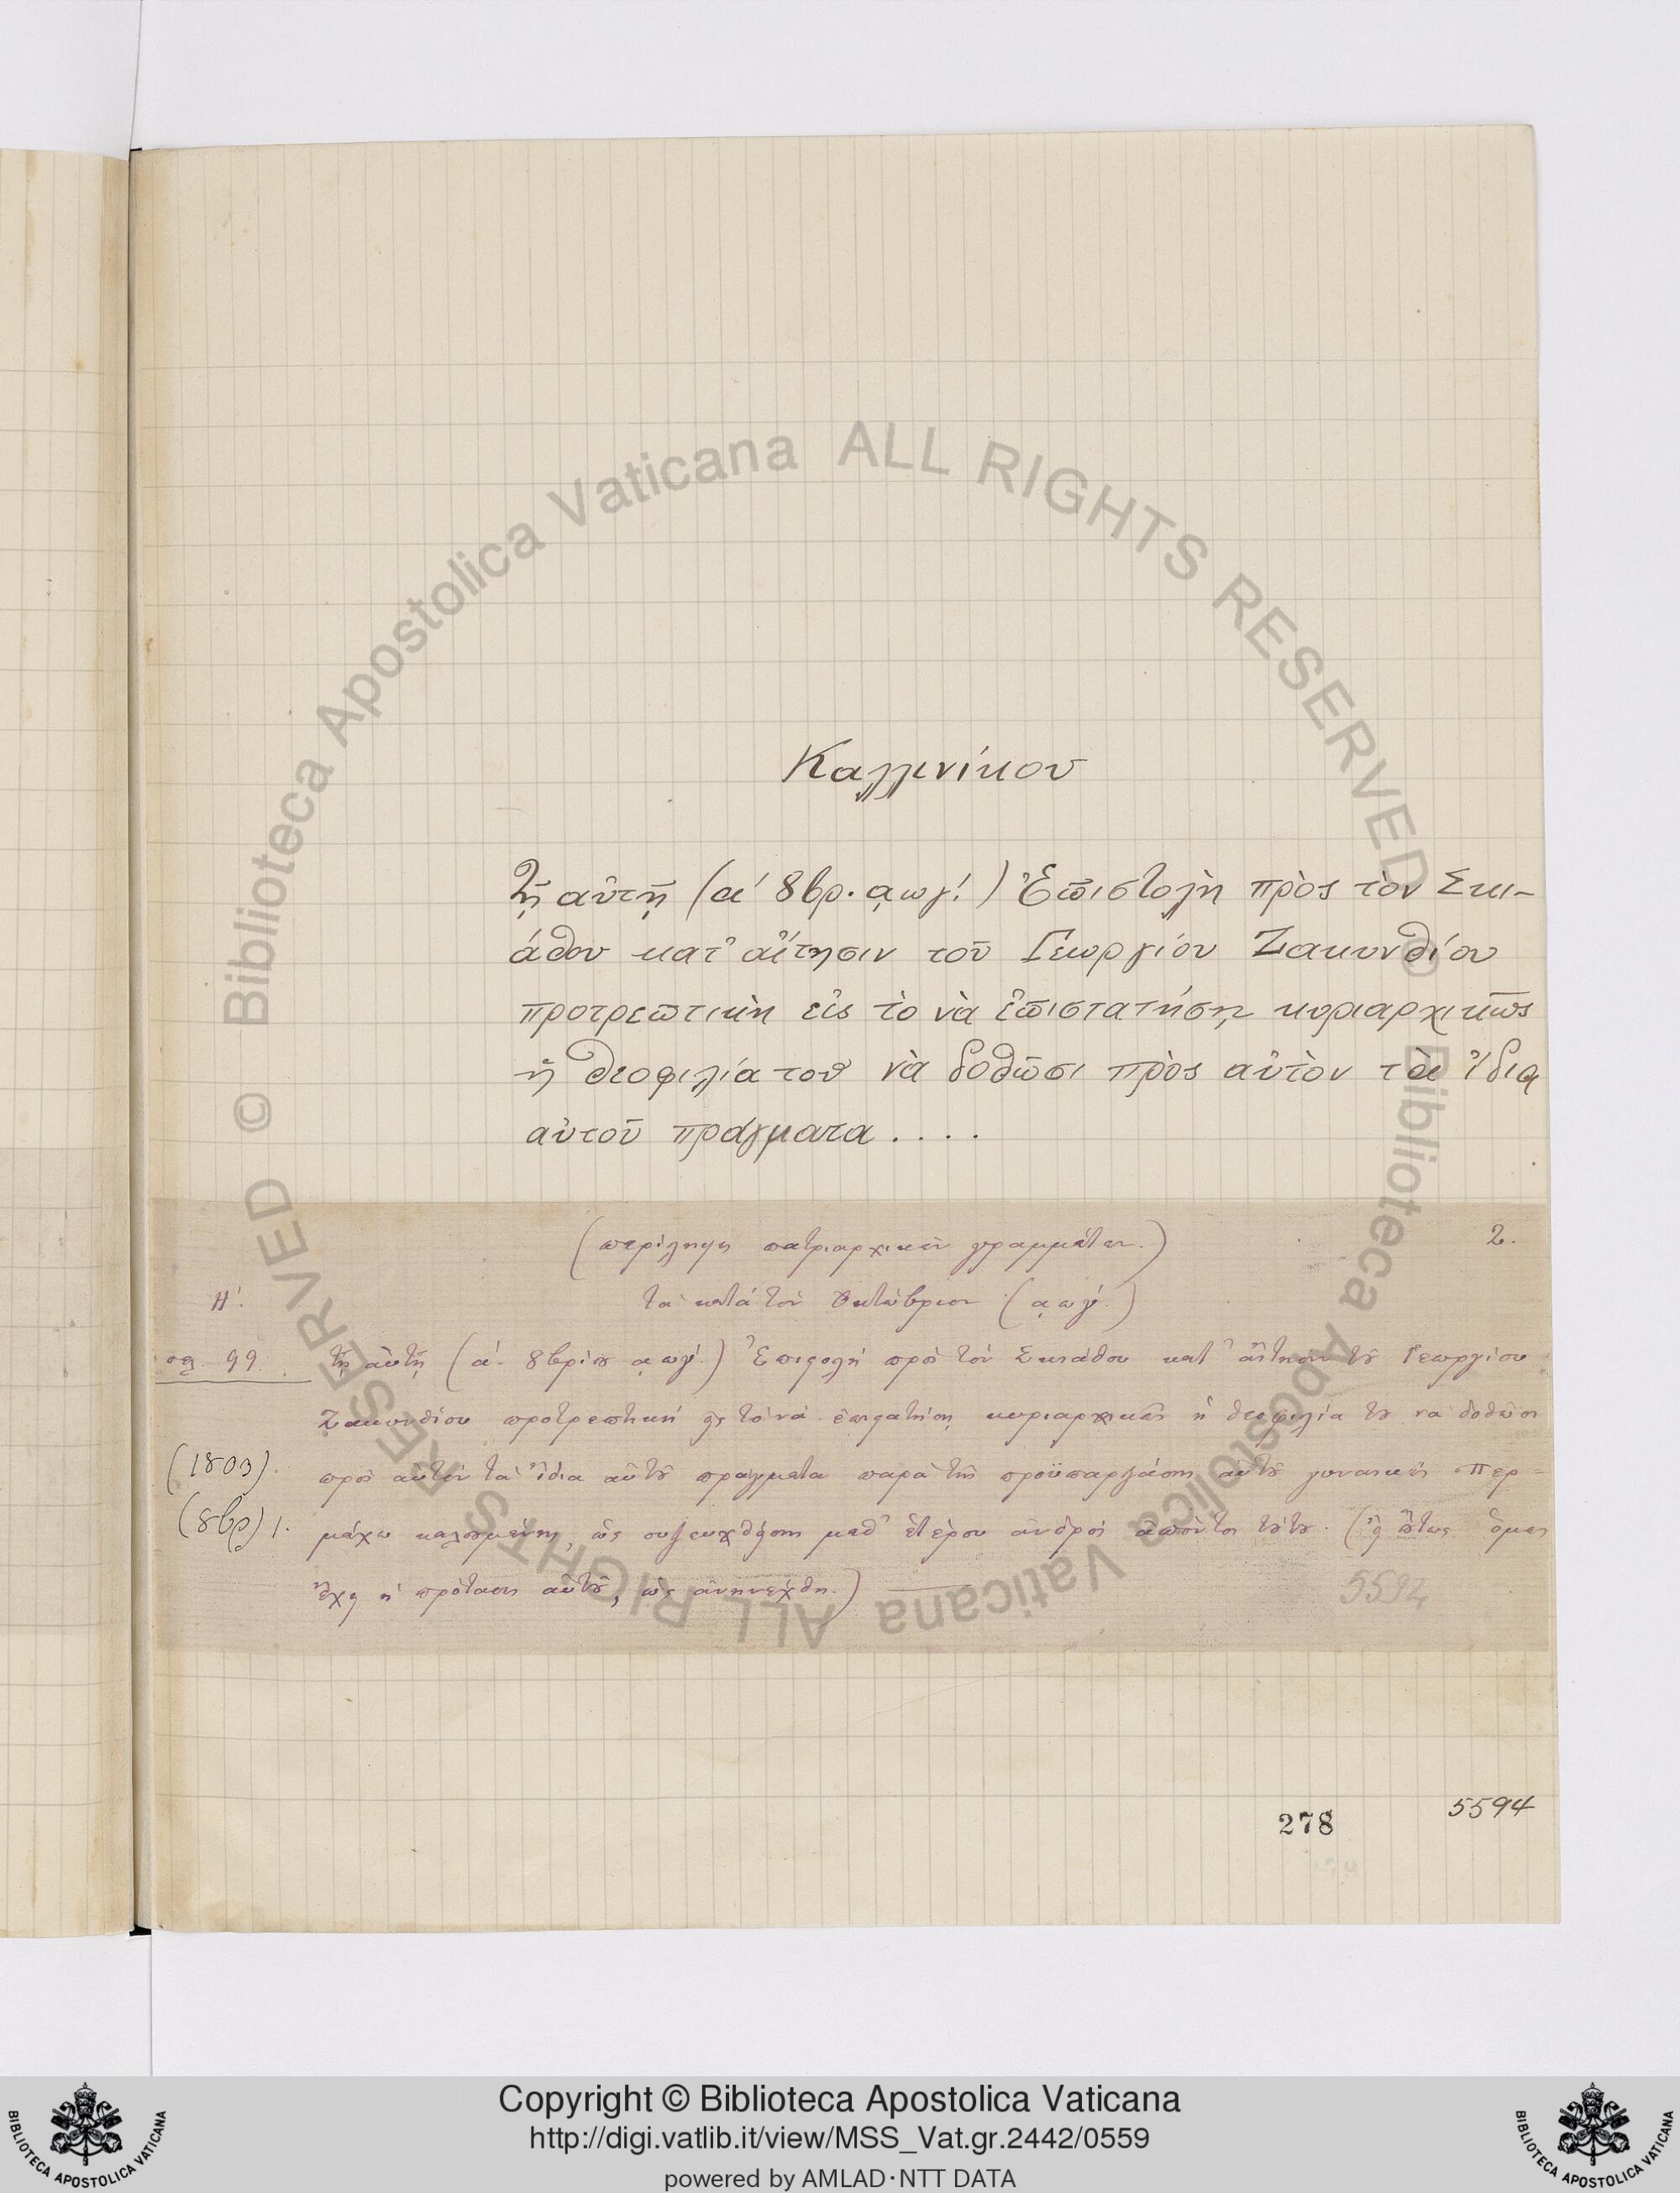 Καλλινίκου
Τῇ αὐτῇ (α´ 8βρ. ͵αωγ´.) Ἐπιστολὴ πρὸς τὸν Σκι-
άθου κατ' αἴτησιν τοῦ Γεωργίου Ζακυνθίου
προτρεπτικὴ εἰς τὸ νὰ ἐπιστατήσῃ κυριαρχικῶς
ἡ θεοφιλία του νὰ δοθῶσι πρὸς αὐτὸν τὰ ἴδια
αὐτοῦ πράγματα....
(περίληψη πατριαρχικῶν γραμμάτων.) 2.
Η´. τὰ κατὰ τὸν Ὀκτώβριον (͵αωγ´.)
σελ. 99. τῇ αὐτῇ (α´. 8βρίου ͵αωγ´.) Ἐπιστολὴ πρὸς τὸν Σκιάθου κατ' αἴτησιν τοῦ Γεωργίου
Ζακυνθίου προτρεπτικὴ εἰς τὸ νὰ ἐπιστατήσῃ κυριαρχικῶς ἡ θεοφιλία του νὰ δοθῶσι
(1803). πρὸς αὐτὸν τὰ ἴδια αὐτοῦ πράγματα παρὰ τῆς προϋπαρξάσης αὐτοῦ γυναικὸς Περ=
(8βρ) 1. μάχω καλουμένης, ὡς συζευχθείσης μεθ' ἑτέρου ἀνδρὸς ἀπόντος τούτου. (εἰ οὕτως ὅμως
ἔχει ἡ πρότασις αὐτοῦ, ὡς ἀνηνέχθη.)
5592
278 5594
Copyright © Biblioteca Apostolica Vaticana
http://digi.vatlib.it/view/MSS_Vat.gr.2442/0559
powered by AMLAD·NTT DATA
BIBLIOTECA APOSTOLICA VATICANA
BIBLIOTECA APOSTOLICA VATICANA
© Biblioteca Apostolica Vaticana ALL RIGHTS RESERVED
© Biblioteca Apostolica Vaticana ALL RIGHTS RESERVED